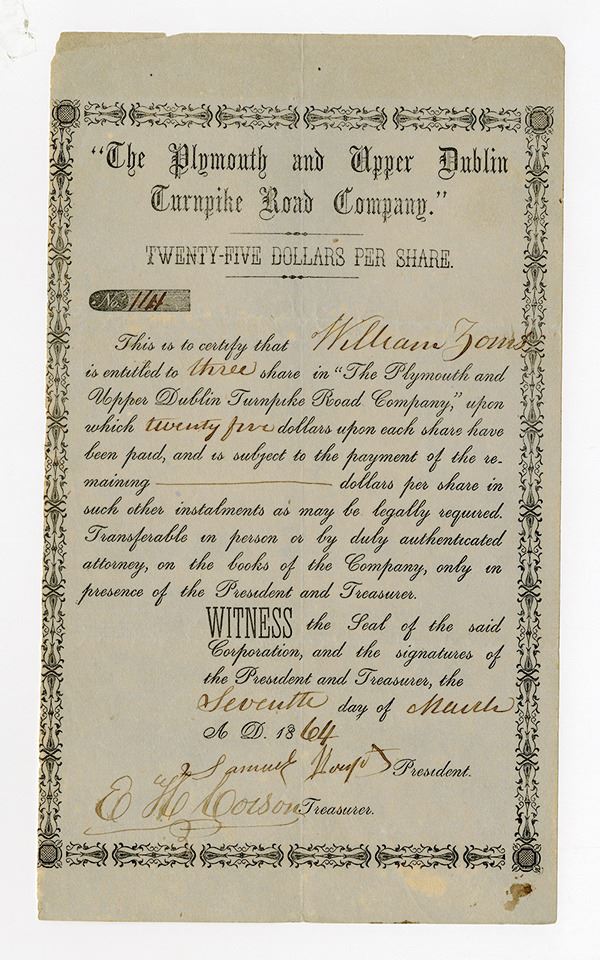 "The Plymouth and Upper Dublin
Turnpike Road Company."
TWENTY-FIVE DOLLARS PER SHARE.
No. 114
This is to certify that William
is entitled to three share in "The Plymouth and
Upper Dublin Turnpike Road Company," upon
which twenty five dollars upon each share have
been paid, and is subject to the payment of the re-
maining dollars per share in
such other instalments as may be legally required.
Transferable in person or by duly authenticated
attorney, on the books of the Company, only in
presence of the President and Treasurer.
WITNESS the Seal of the said
Corporation, and the signatures of
the President and Treasurer, the
Seventh day of March
A D. 1864
Samuel President.
E H Corson Treasurer.